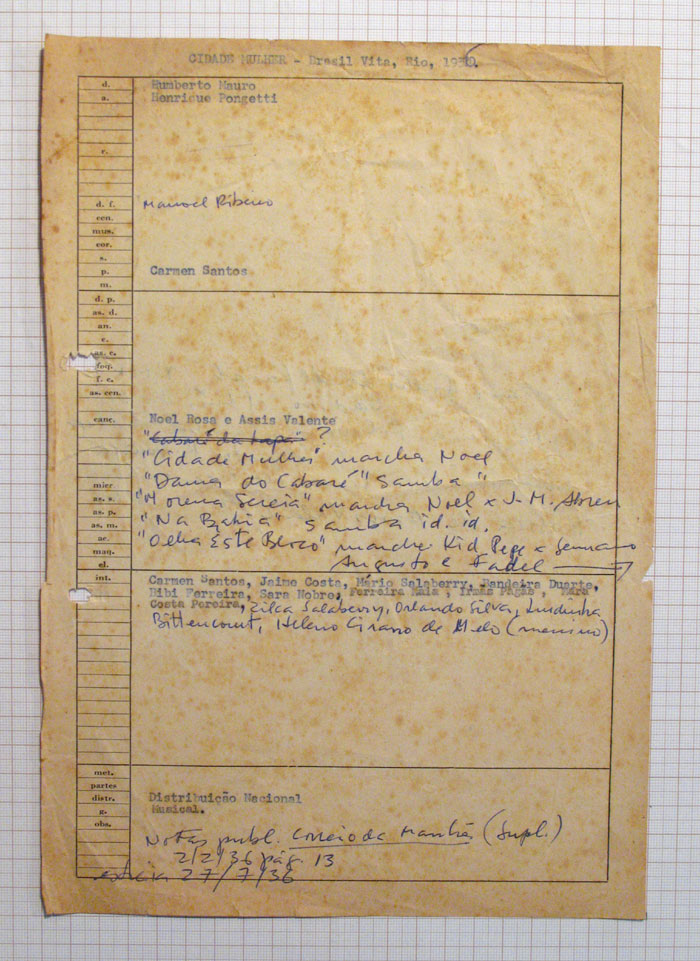 CIDADE MULHER - Brasil Vita, Rio, 1936.
d. Humberto Mauro
a. Henrique Pongetti
r.
d. f. Manoel Ribeiro
cen.
mus.
cor.
s.
p. Carmen Santos
m.
d. p.
as. d.
an.
c.
as. c.
foq.
f. c.
as. cen.
canc. Noel Rosa e Assis Valente
"Cabaré da Lapa" ?
"Cidade Mulher" marcha Noel
micr "Dama do Cabaré" samba "
as. s. "Morena Sereia" marcha Noel x J. M. Abreu
as. p.
as. m. "Na Bahia" samba id. id.
ac.
maq. "Olha Este Bloco" marcha Kid Pepe x Germano
el. Augusto e Fadel
int. Carmen Santos, Jaime Costa, Mário Salaberry, Bandeira Duarte,
Bibi Ferreira, Sara Nobre, Ferreira Maia, Irmãs Pagãs, Mara
Costa Pereira, Zilca Salaberry, Orlando Silva,
Bittencourt, de Melo (menino)
met.
partes
distr. Distribuição Nacional
g. Musical.
obs.
Notas publ. Correio da Manhã (Supl.)
2/2/36 pág. 13
estreia 27/7/36